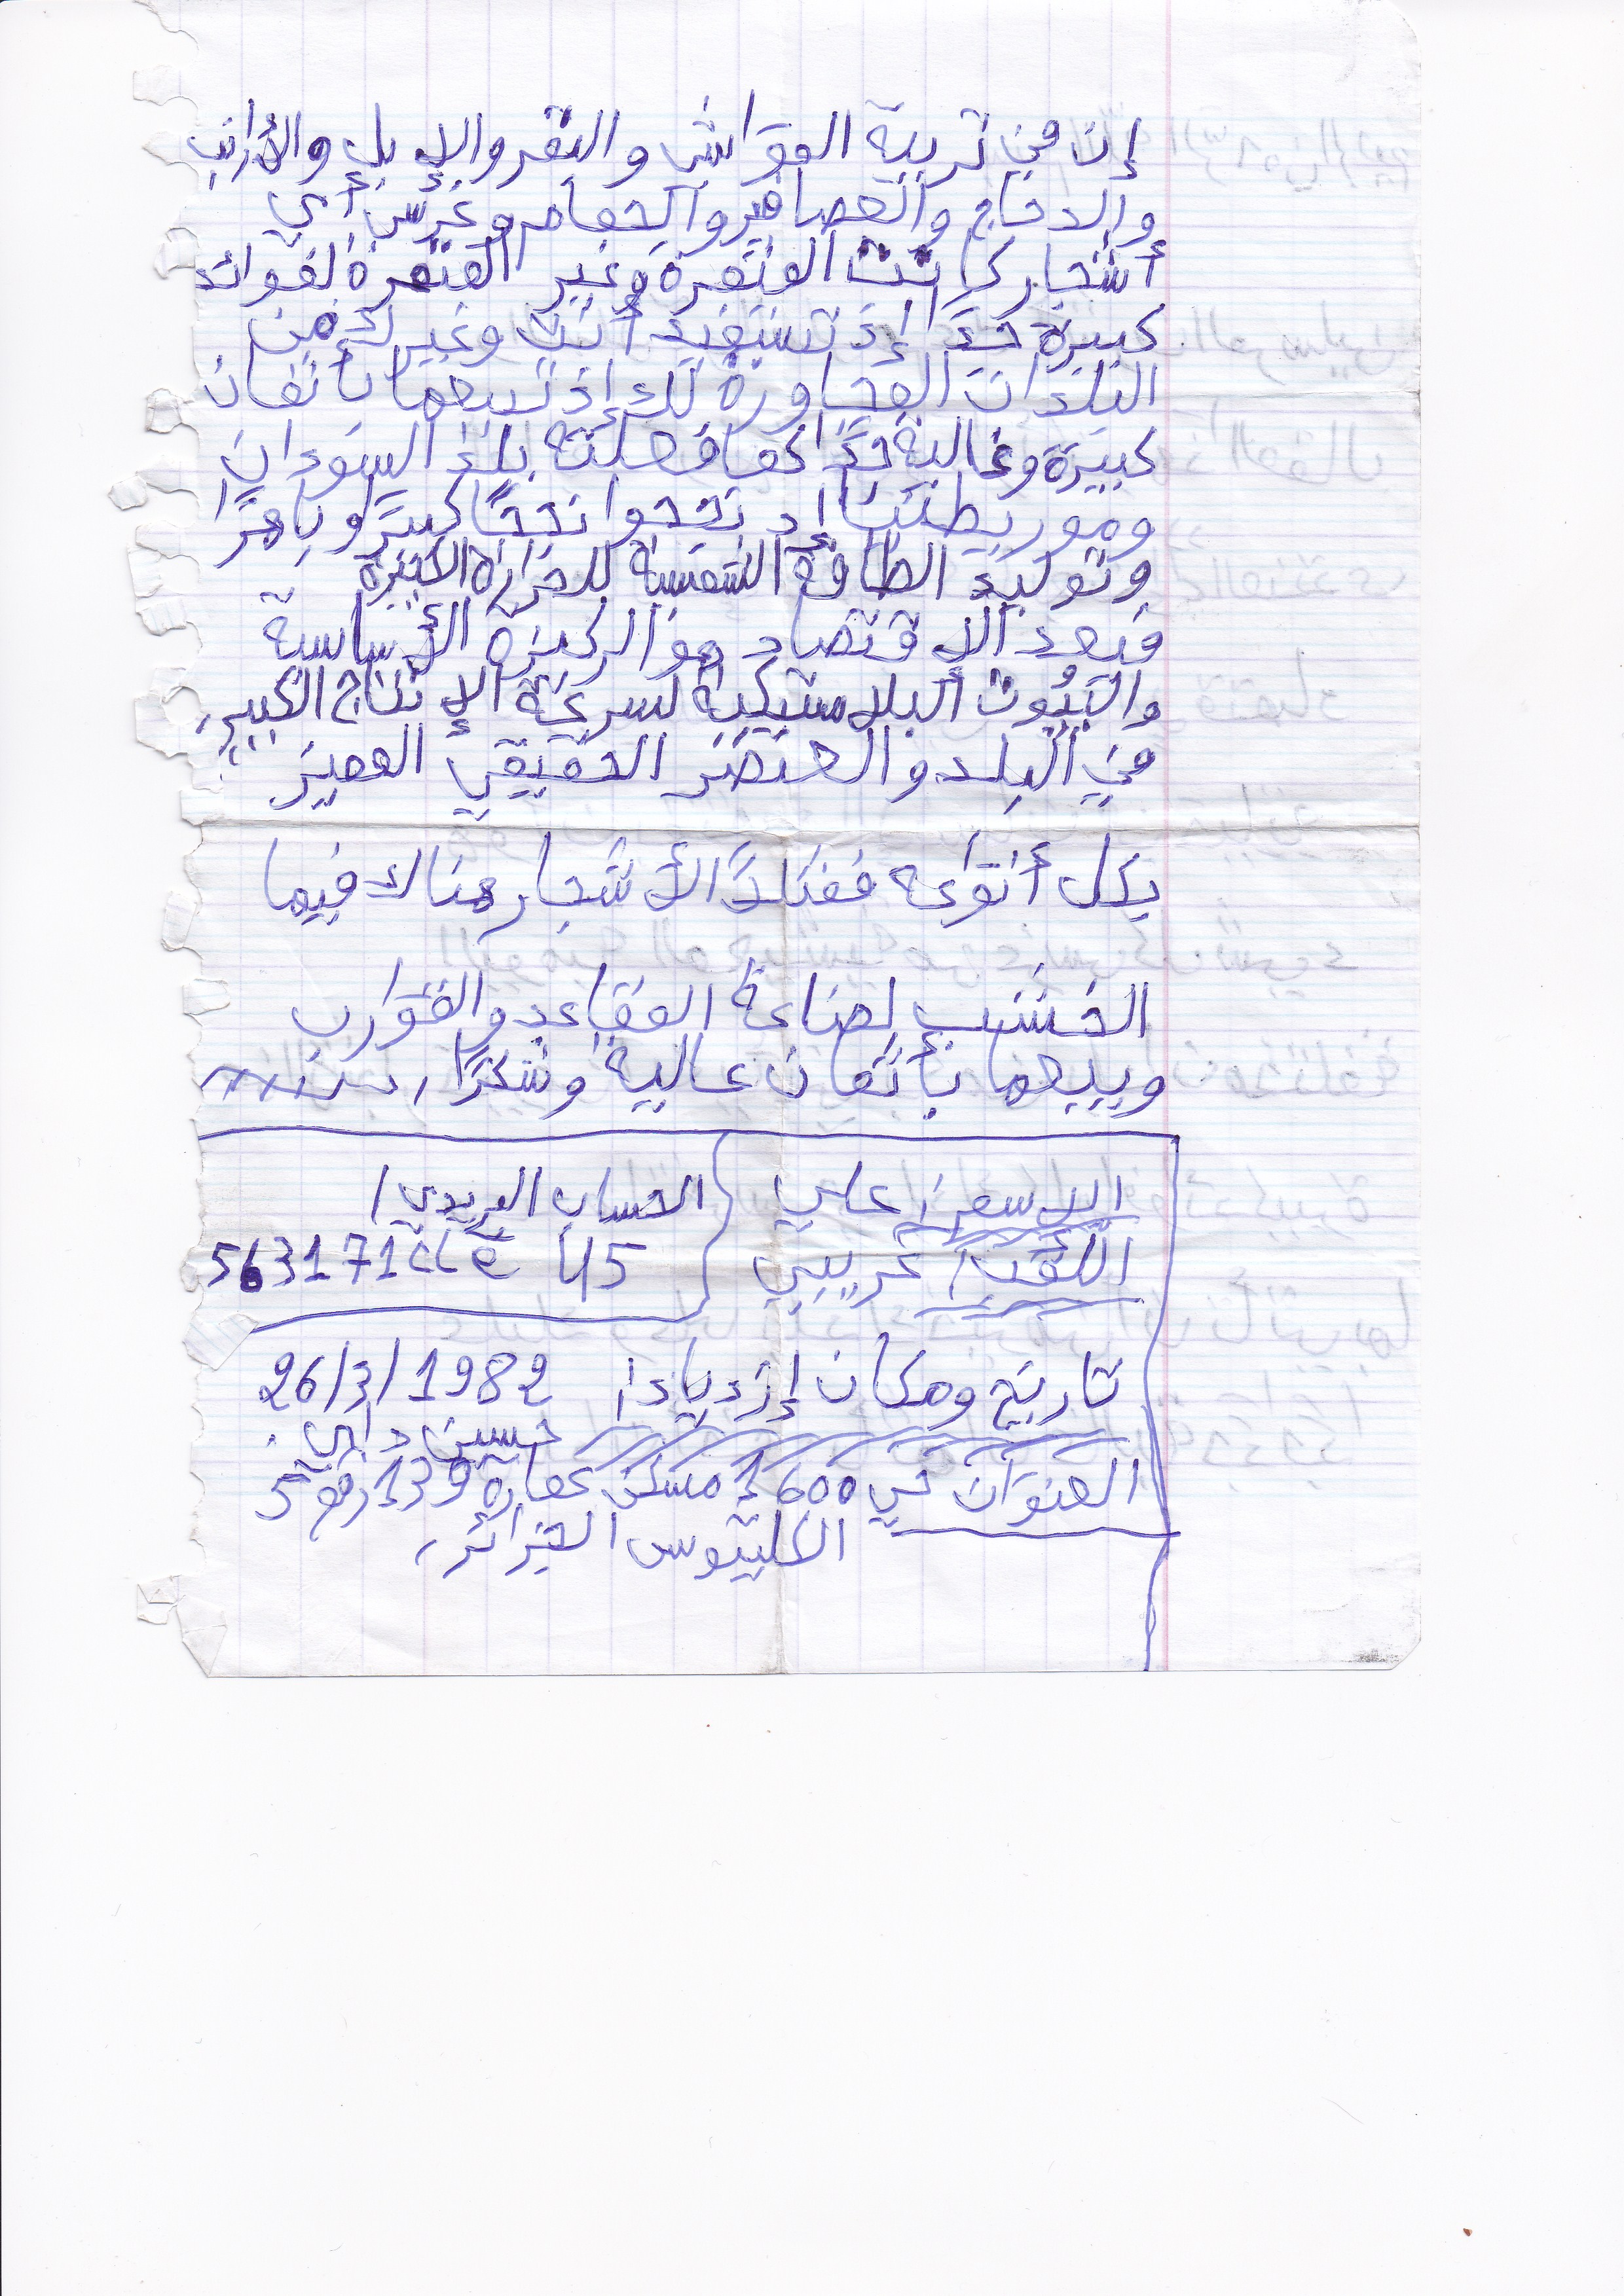 إن في تربية المواشي والبقر والإبل والأرانب
والدجاج والعصافير والحمام وغرس أي
أشجار كانت المثمرة وغير المثمرة لفوائد
كبيرة جدًا إذ تستفيد أنت وغيرك من
البلدان المجاورة لك إذ تبيعها بأثمان
كبيرة وغالية جدًا كما فعلته بلد السودان
وموريطنيا إد نجحوا نجحًا كبيرًا وباهرًا
وتوليد الطاقة الشمسية للحرارة الكبيرة
فيعد الإقتصاد هو الركيزة الأساسية
والبيُوت البلاستيكية لسرعة الإنتاج الكبير
في البلد والعنصر الحقيقي المميز
بكل أنواعه فمثلاً الأشجار هناك فيها
الخشب لصناعة المقاعد والقوارب
وبيعها بأثمان عالية وشكرًا
الاسم: علي
الحساب البريدي /
اللقب / غريبي
563171 cle 45
تاريخ ومكان إزدياد: 26/3/1982
حسين داي.
العنوان حي 1600 مسكن عمارة 139 رقم 5
الكليتوس الجزائر